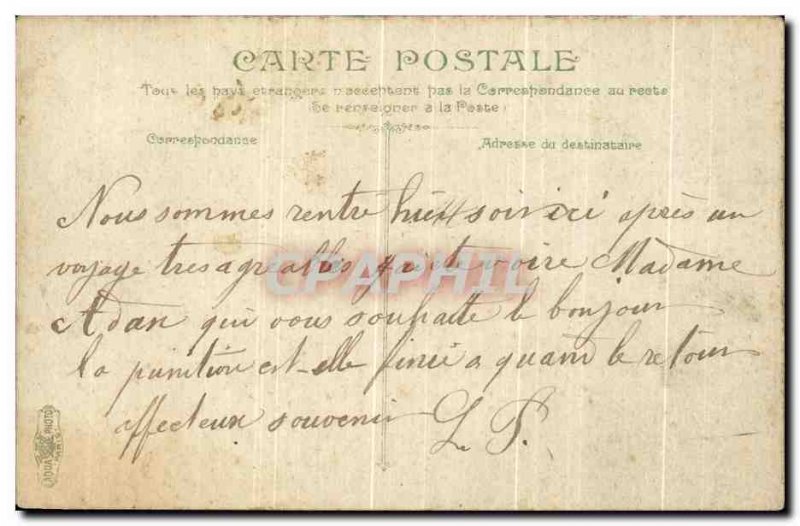 CARTE POSTALE
Tous les pays étrangers n'acceptent pas la Correspondance au recto
(Se renseigner à la Poste)
Correspondance
Adresse du destinataire
Nous sommes rentre hier soir ici après un
voyage tres agreables j'ai ete voire Madame
Adan qui vous souhatte le bonjour
la punition est-elle finie a quand le retour
affecteux souvenir L. P.
AQUA PHOTO
PARIS